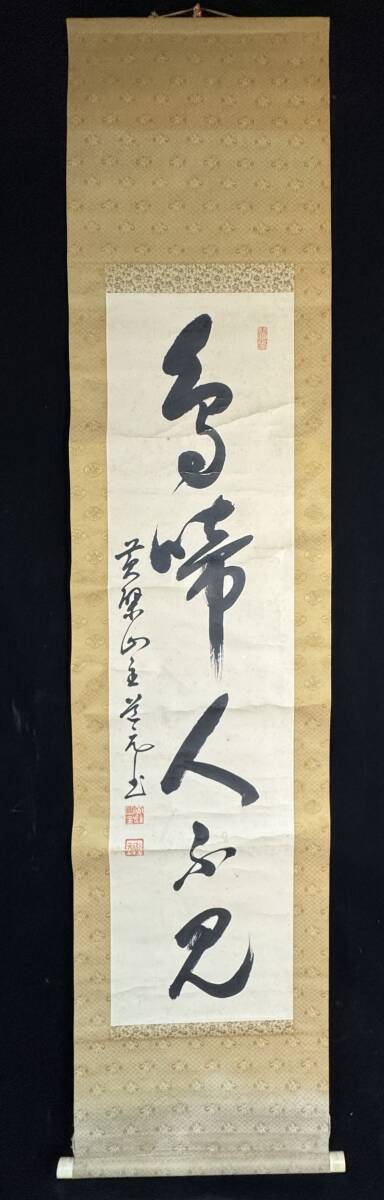 鳥啼人不見
黄檗山主道元書